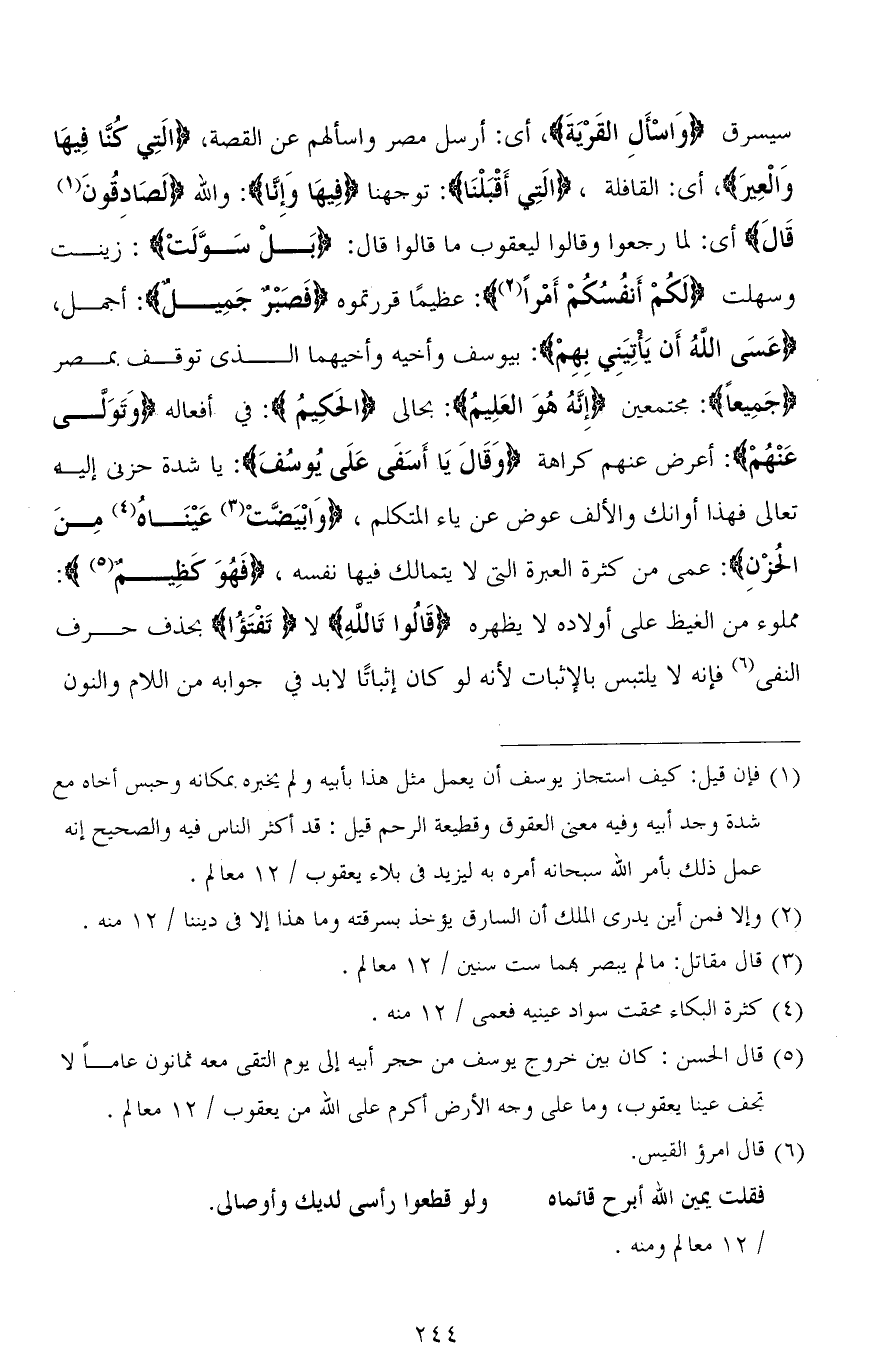 سيسرق ﴿وَاسْأَلِ القَرْيَةَ﴾، أى: أرسل مصر واسألهم عن القصة، ﴿الَتِي كُنَّا فِيهَا
وَالْعِيرَ﴾، أى: القافلة ، ﴿الَتِي أَقْبَلْنَا﴾: توجهنا ﴿فِيهَا وَإِنَّا﴾: والله ﴿لَصَادِقُونَ(١)
قَالَ﴾ أى: لما رجعوا وقالوا ليعقوب ما قالوا قال: ﴿بَلْ سَوَّلَتْ﴾ : زينت
وسهلت ﴿لَكُمْ أَنفُسُكُمْ أَمْراً(٢)﴾: عظيمًا قررتموه ﴿فَصَبْرٌ جَمِيلٌ﴾: أجمل،
﴿عَسَى اللَّهُ أَن يَأْتِيَنِي بِهِمْ﴾: بيوسف وأخيه وأخيهما الذى توقف بمصر
﴿جَمِيعاً﴾: مجتمعين ﴿إِنَّهُ هُوَ العَلِيمُ﴾: بحالى ﴿الحَكِيمُ ﴾: في أفعاله ﴿وَتَوَلَّى
عَنْهُمْ﴾: أعرض عنهم كراهة ﴿وَقَالَ يَا أَسَفَى عَلَى يُوسُفَ﴾: يا شدة حزنى إليه
تعالى فهذا أوانك والألف عوض عن ياء المتكلم ، ﴿وَابْيَضَّتْ(٣) عَيْنَاهُ(٤) مِنَ
الحُزْنِ﴾: عمى من كثرة العبرة التى لا يتمالك فيها نفسه ، ﴿فَهُوَ كَظِيمٌ(٥) ﴾:
مملوء من الغيظ على أولاده لا يظهره ﴿قَالُوا تَاللَّهِ﴾ لا ﴿ تَفْتَؤُا﴾ بحذف حرف
النفى(٦) فإنه لا يلتبس بالإثبات لأنه لو كان إثباتًا لابد في جوابه من اللام والنون
(١) فإن قيل: كيف استجاز يوسف أن يعمل مثل هذا بأبيه ولم يخبره بمكانه وحبس أخاه مع
شدة وجد أبيه وفيه معنى العقوق وقطيعة الرحم قيل : قد أكثر الناس فيه والصحيح إنه
عمل ذلك بأمر الله سبحانه أمره به ليزيد فى بلاء يعقوب / ١٢ معالم .
(٢) وإلا فمن أين يدرى الملك أن السارق يؤخذ بسرقته وما هذا إلا فى ديننا / ١٢ منه .
(٣) قال مقاتل: ما لم يبصر بهما ست سنين / ١٢ معالم .
(٤) كثرة البكاء محقت سواد عينيه فعمى / ١٢ منه .
(٥) قال الحسن : كان بين خروج يوسف من حجر أبيه إلى يوم التقى معه ثمانون عاماً لا
تجف عينا يعقوب، وما على وجه الأرض أكرم على الله من يعقوب / ١٢ معالم .
(٦) قال امرؤ القيس.
فقلت يمين الله أبرح قائماه ولو قطعوا رأسى لديك وأوصالى.
/ ١٢ معالم ومنه .
٢٤٤